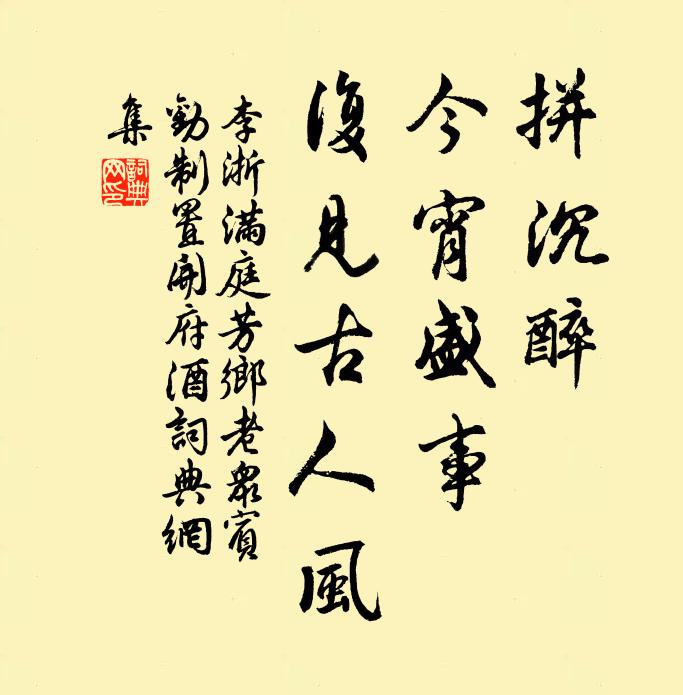 拼沉醉
今宵盛事
復見古人風
李浙滿庭芳鄉老眾賓
勸制置開府酒詞典網
集
詞典網印